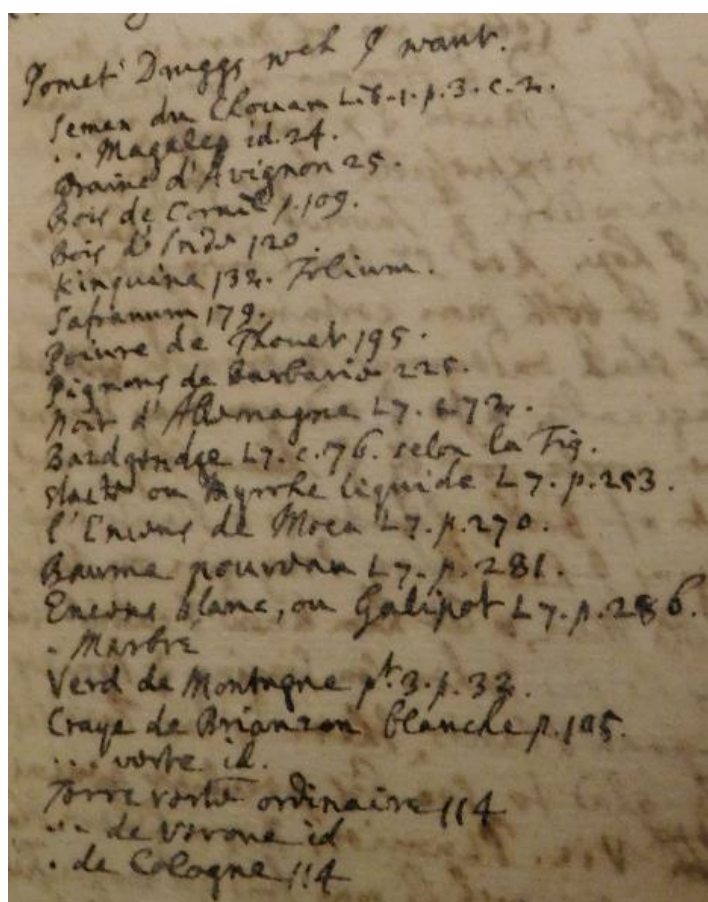 Pomet' Druggs wch I want.
Semen du Chouan L.6-1.p.3.c.2.
.. Magalep id.24.
Graine d'Avignon 25.
Bois de Cornil p.109.
Bois d'Inde 120.
Kinquina 132. Folium.
Safranum 179.
Poivre de Thouet 195.
Pignons de barbarie 225.
noir d'Allemagne L7. c.72.
L7.c.76. selon la Fig.
stacte ou Myrrhe liquide L7.p.253.
l'Encens de Moca L7.p.270.
Baume L7.p.281.
Encens blanc, ou Galipot L7.p.286.
. Marbre
Verd de Montagne pt.3.p.32.
Craye de Brianzon blanche p.105.
... verte id.
Terre verte ordinaire 114
... de Verone id
. de Cologne 114